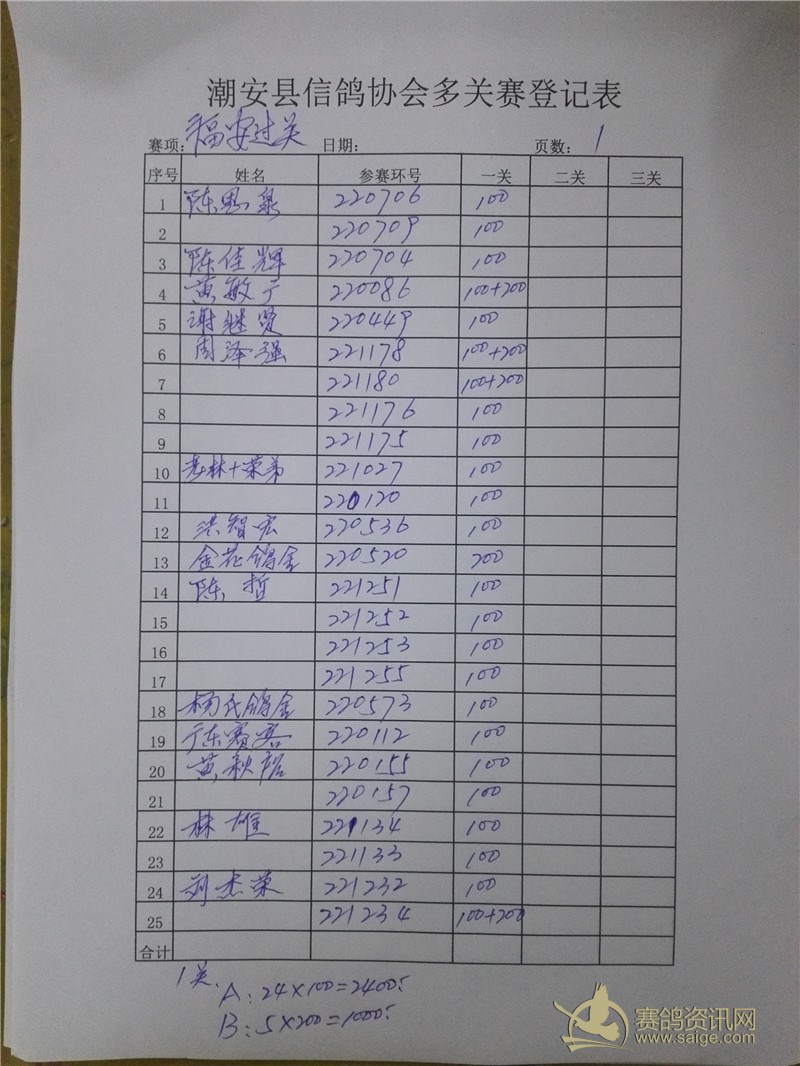 潮安县信鸽协会多关赛登记表
赛项: 福安过关 日期: 页数: 1
序号 姓名 参赛环号 一关 二关 三关
1 陈思泉 220706 100
2 220709 100
3 陈佳辉 220704 100
4 黄敏宁 220086 100+200
5 谢继贤 220449 100
6 周泽强 221178 100+200
7 221180 100+200
8 221176 100
9 221175 100
10 老林+荣弟 221027 100
11 220120 100
12 洪智宏 220536 100
13 金花鸽舍 220520 200
14 陈哲 221251 100
15 221252 100
16 221253 100
17 221255 100
18 杨氏鸽舍 220573 100
19 广东赛客 220112 100
20 黄秋 220155 100
21 220157 100
22 林雄 221134 100
23 221133 100
24 刘杰荣 221232 100
25 221234 100+200
合计
1关.
A: 24×100=2400:
B: 5×200=1000:
赛鸽资讯网
www.saige.com